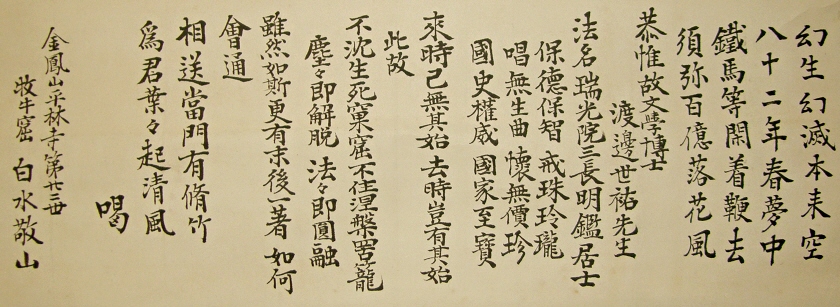 幻生幻滅本来空
八十二年春夢中
鐵馬等閑着鞭去
須弥百億落花風
恭惟故文學博士
渡邊世祐先生
法名瑞光院三長明鑑居士
保德保智 戒珠玲瓏
唱無生曲 懷無價珍
國史權威 國家至寶
来時已無其始 去時豈有其始
此故
不沈生死窠窟不住涅槃罟籠
塵々即解脱 法々即圓融
雖然如斯更有末後一著 如何
會通
相送當門有脩竹
爲君葉々起清風
喝
金鳳山平林寺第廿二世
牧牛窟 白水敬山